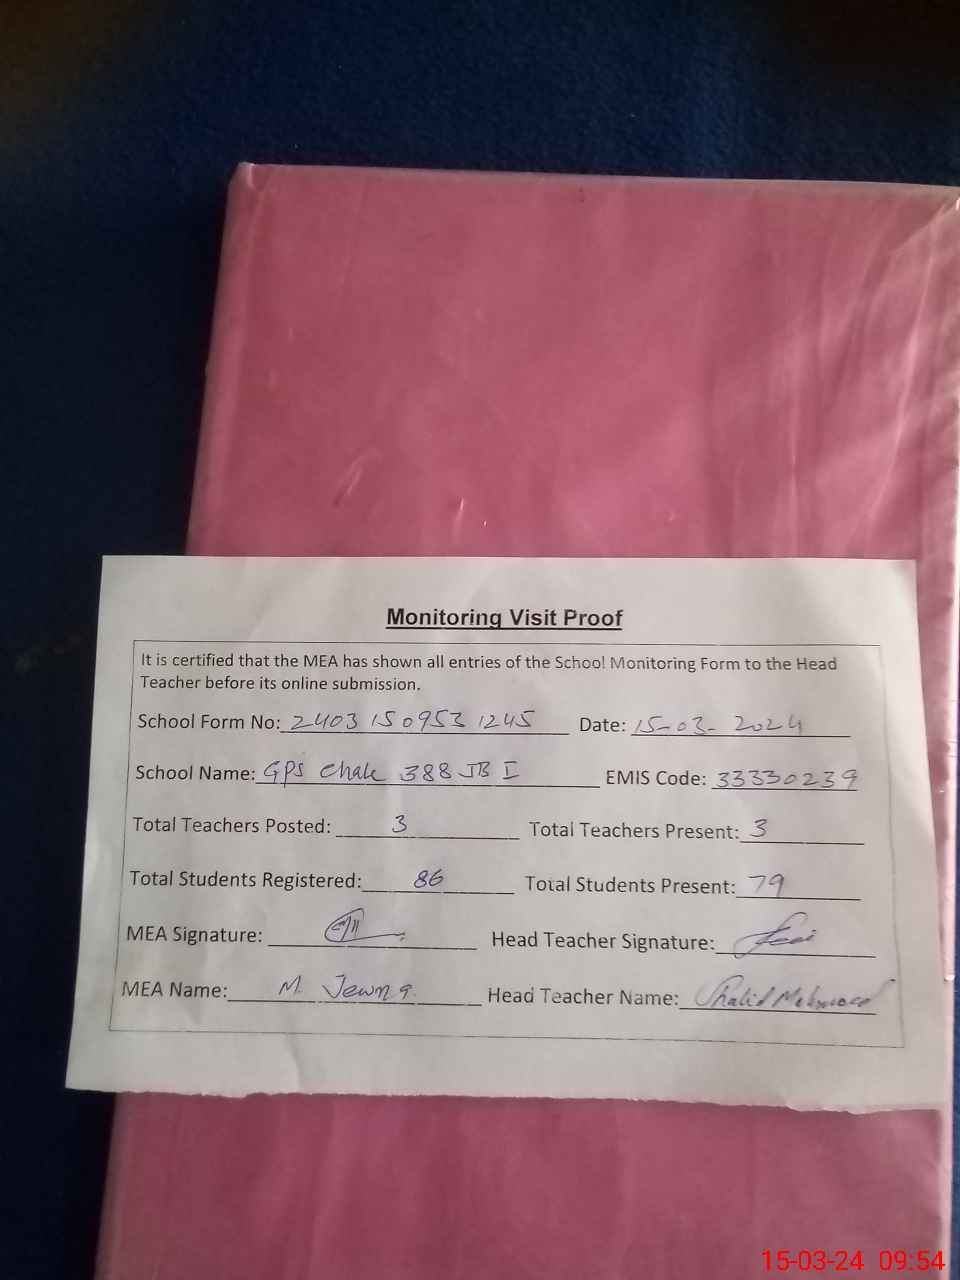 Monitoring Visit Proof
It is certified that the MEA has shown all entries of the School Monitoring Form to the Head
Teacher before its online submission.
School Form No: 2403 150953 1245 Date: 15-03-2024
School Name: GPS Chak 388 JB I EMIS Code: 33330239
Total Teachers Posted: 3 Total Teachers Present: 3
Total Students Registered: 86 Total Students Present: 79
MEA Signature: Head Teacher Signature:
MEA Name: M. Head Teacher Name: Khalid Mehmood
15-03-24 09:54